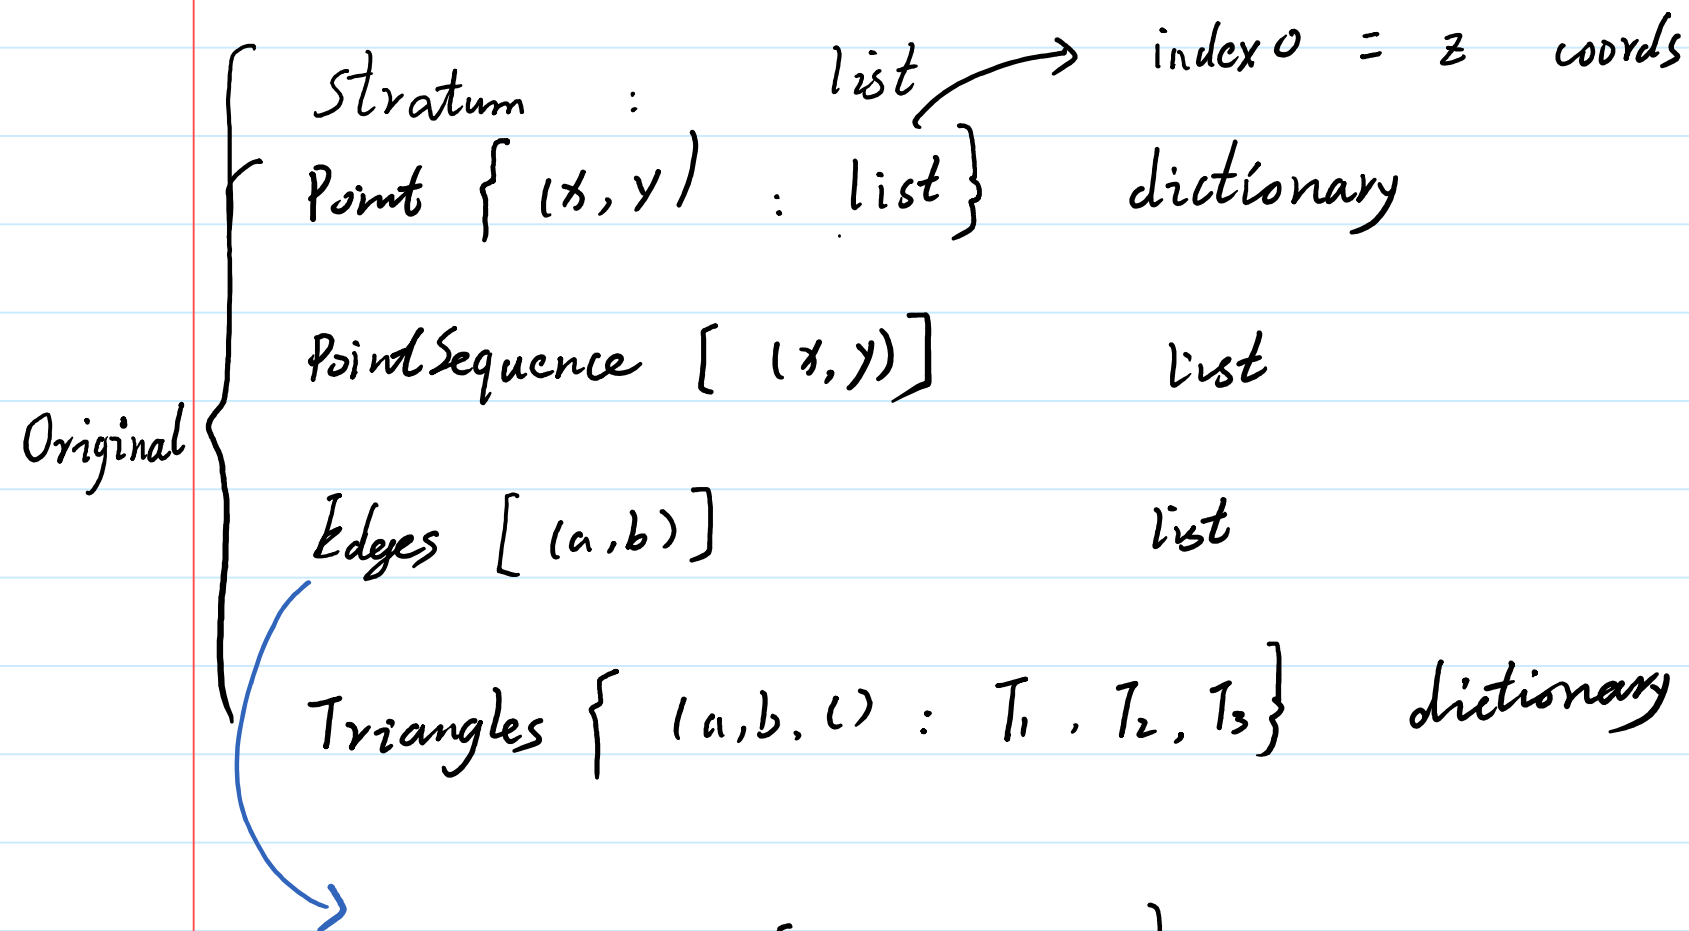 Stratum : list
index 0 = z coords
Point { (x, y) : list } dictionary
PointSequence [ (x, y) ] list
Original
Edges [ (a, b) ] list
Triangles { (a, b, c) : T1, T2, T3 } dictionary